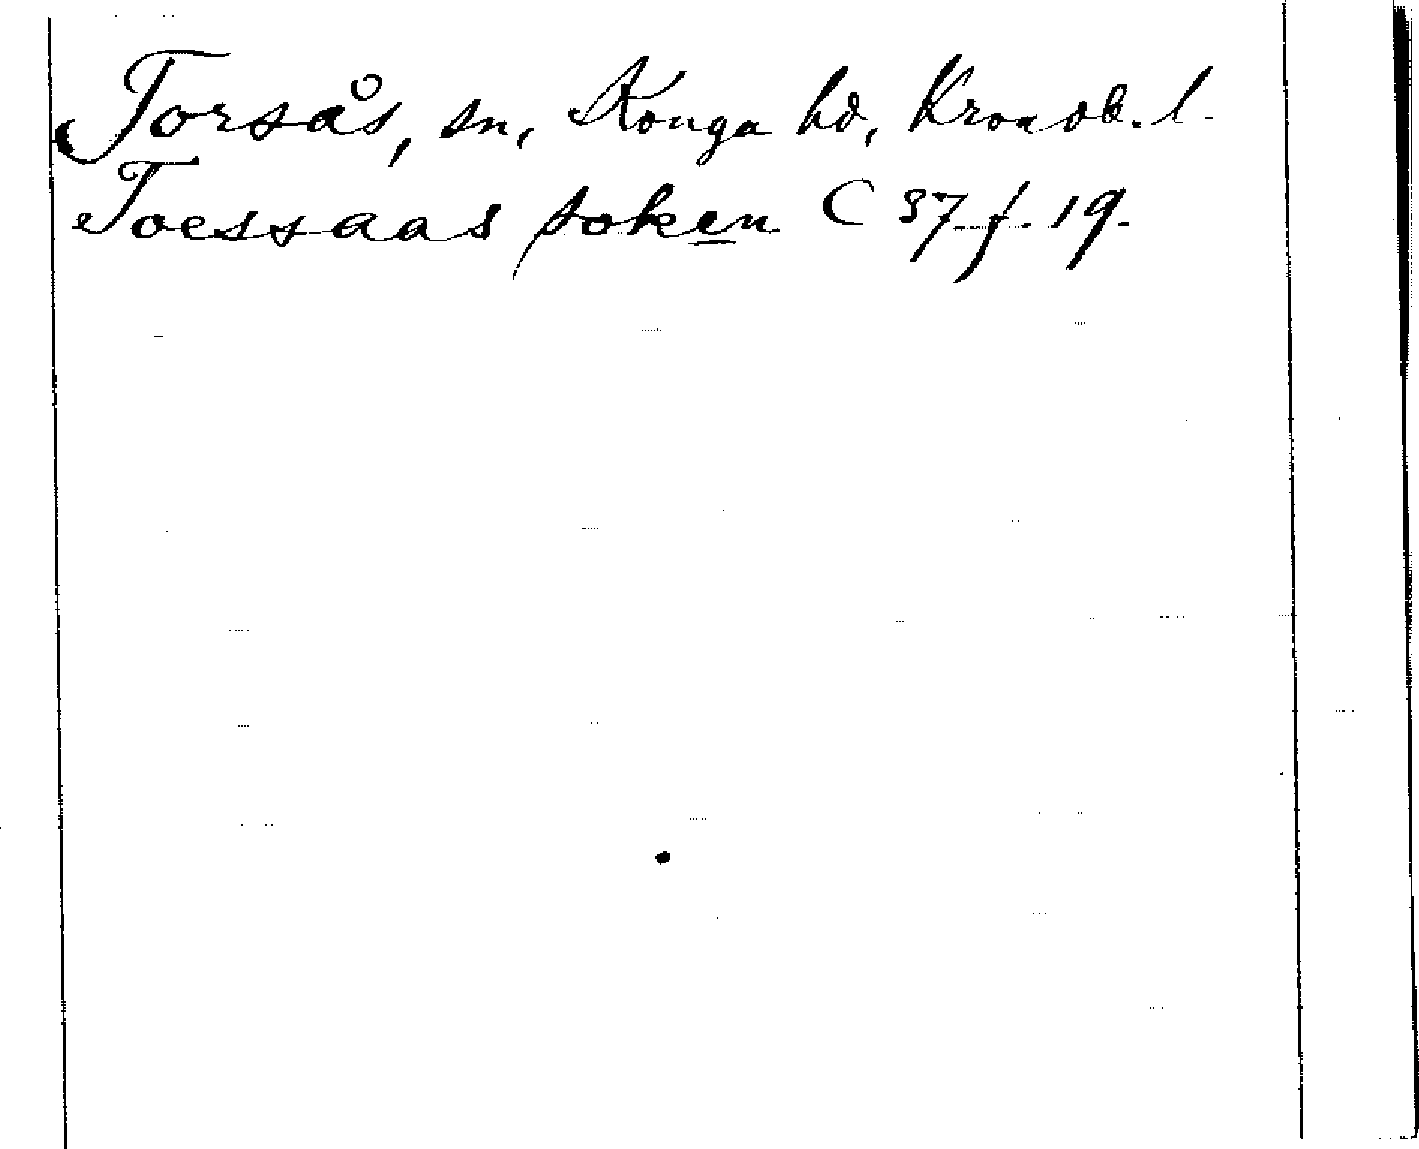 Torsås, sn, Konga hd, Kronob. l.
Toessaas soken C 37 f. 19.